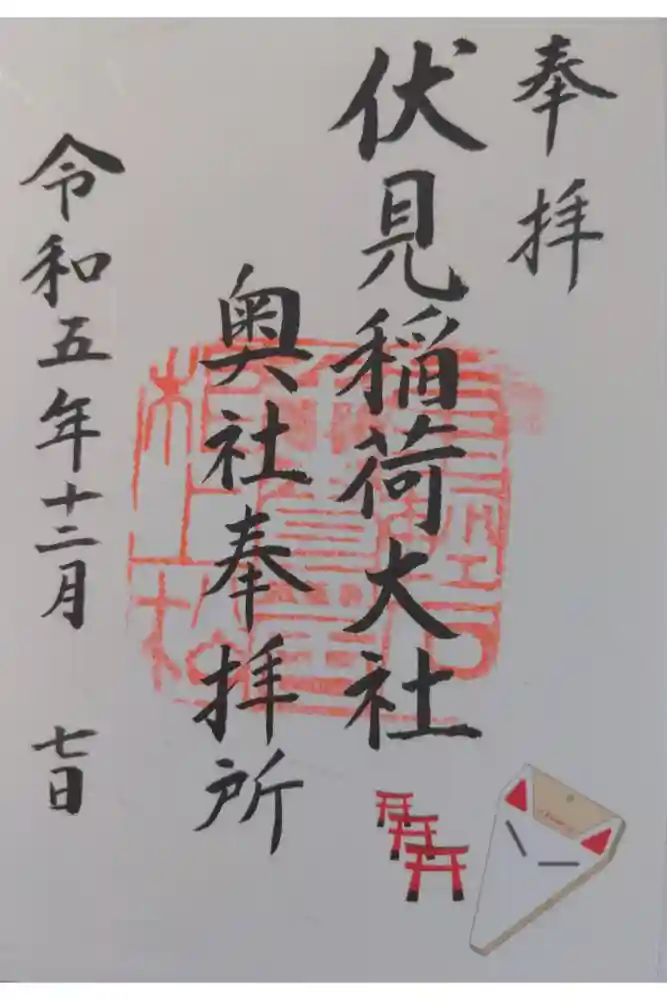 奉拝
伏見稲荷大社
奥社奉拝所
令和五年十二月 七日